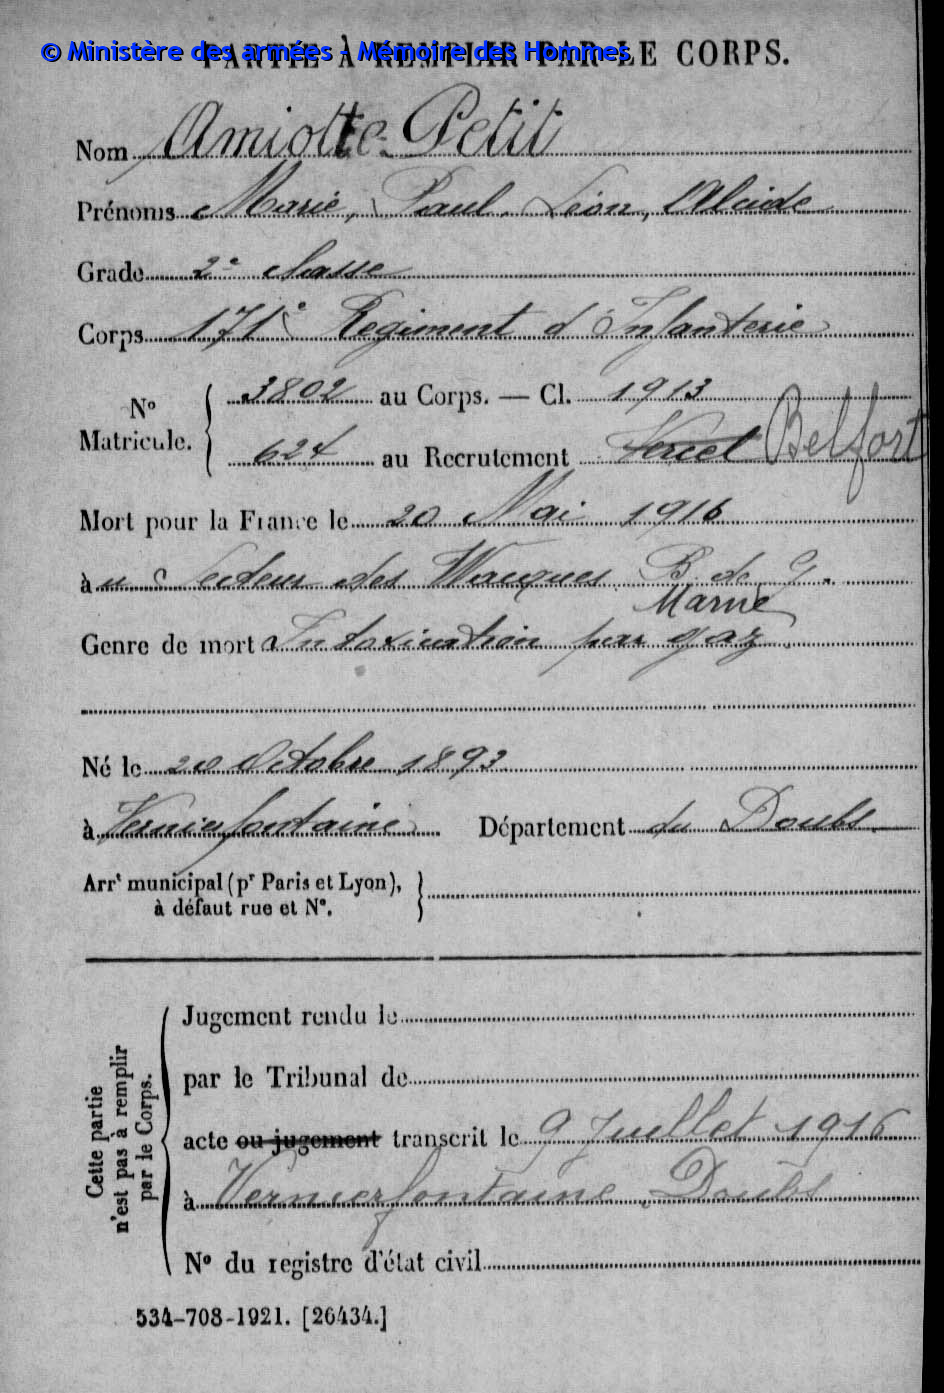 © Ministère des armées - Mémoire des Hommes
PARTIE À REMPLIR PAR LE CORPS.
Nom Amiotte-Petit
Prénoms Marie, Paul, Léon, Alcide
Grade 2e classe
Corps 171e Regiment d'Infanterie
No Matricule. 3802 au Corps. — Cl. 1913
624 au Recrutement Vercel Belfort
Mort pour la France le 20 Mai 1916
à u Secteur des Wacques B. de G.
Marne
Genre de mort Intoxication par gaz
Né le 20 Octobre 1893
à Vernierfontaine Département du Doubs
Arrt municipal (pr Paris et Lyon),
à défaut rue et No.
Cette partie
n'est pas à remplir
par le Corps.
Jugement rendu le
par le Tribunal de
acte ou jugement transcrit le 9 Juillet 1916
à Vernierfontaine, Doubs
No du registre d'état civil
534-708-1921. [26434.]